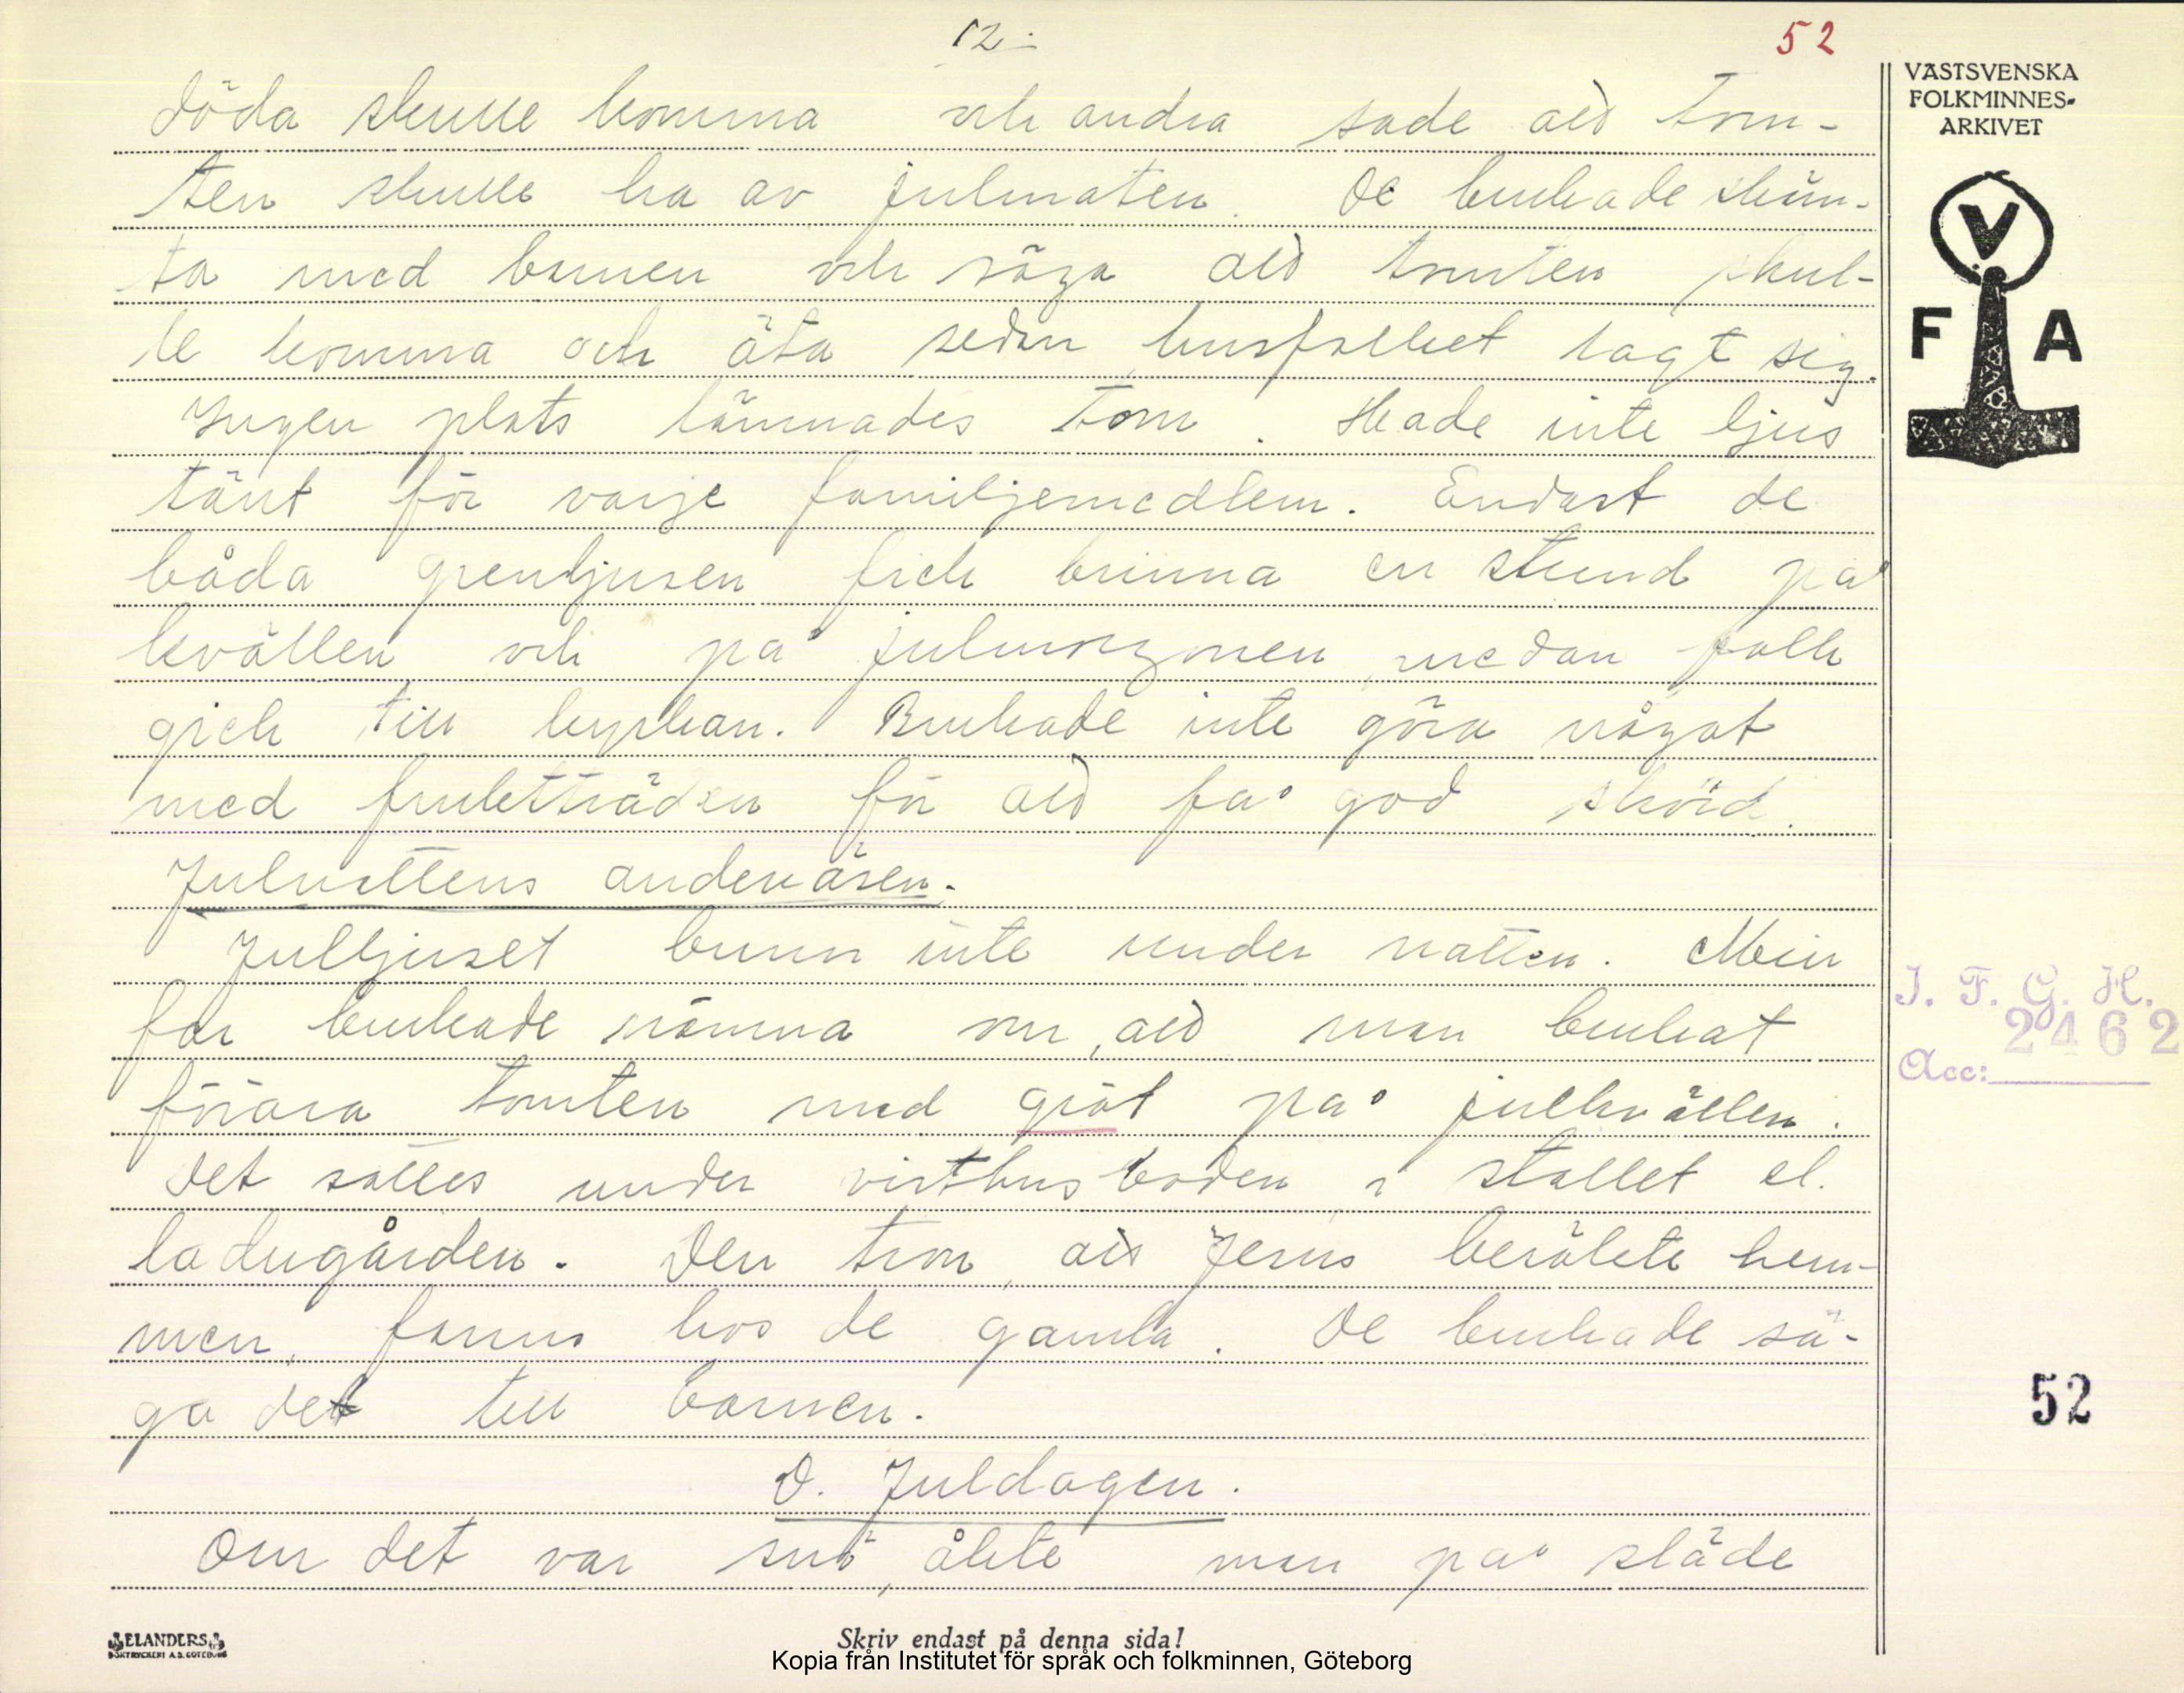 12.
52
döda skulle komma och andra sade att tom-
ten skulle ha av julmaten. De brukade skäm-
ta med barnen och säga att tomten skul-
le komma och äta sedan husfolket lagt sig.
Ingen plats lämnades tom. Hade inte ljus
tänt för varje familjemedlem. Endast de
båda grenljusen fick brinna en stund på
kvällen och på julmorgonen, medan folk
gick till kyrkan. Brukade inte göra något
med fruktträden för att få god skörd.
Julnattens andeväsen.
Julljuset brann inte under natten. Min
far brukade nämna om, att man brukat
förära tomten med gröt på julkvällen.
Det sattes under visthusboden i stallet el.
ladugården. Den tron, att Jesus besökte hem-
men, fanns hos de gamla. De brukade sä-
ga det till barnen.
D. Juldagen.
Om det var snö, åkte man på släde
VÄSTSVENSKA
FOLKMINNES-
ARKIVET
V
F A
I. F. G. H.
2462
Acc:
52
ELANDERS
BOKTRYCKERI A.B. GÖTEBORG
Skriv endast på denna sida!
Kopia från Institutet för språk och folkminnen, Göteborg